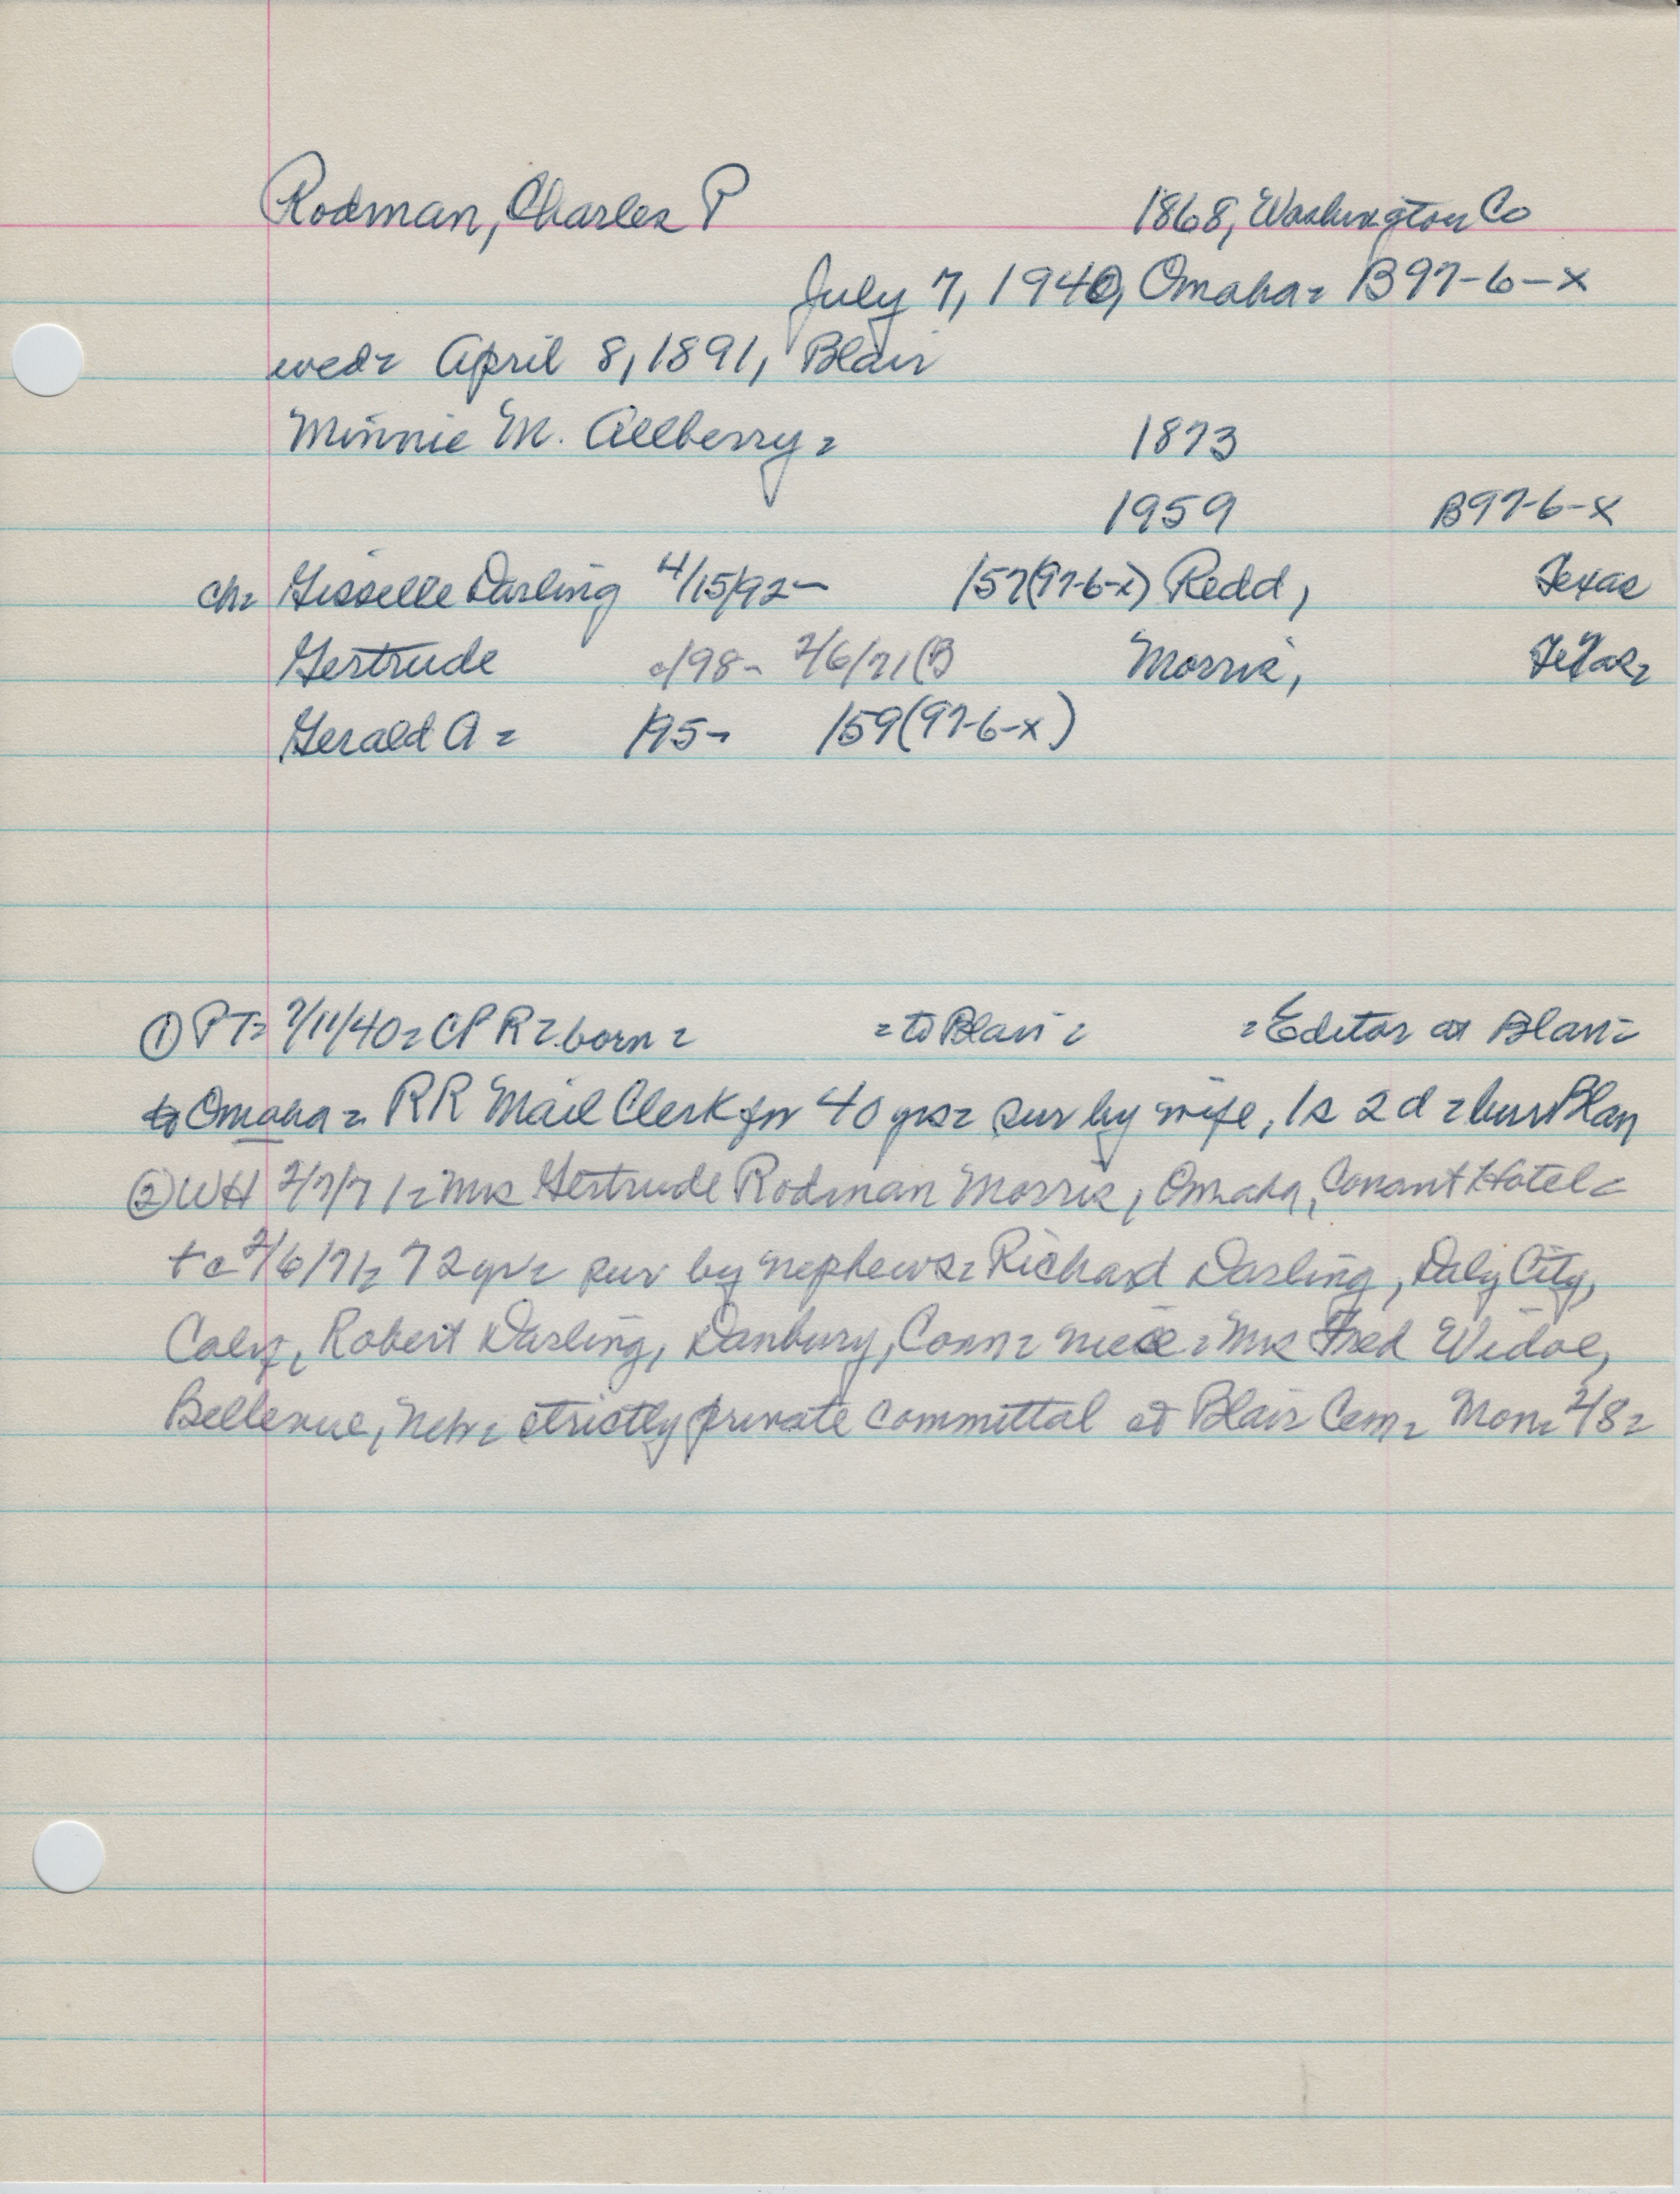 Rodman, Charles P 1868, Washington Co
July 7, 1940, Omaha = B97-6-x
wed= April 8, 1891, Blair
Minnie M. Allberry = 1873
1959 B97-6-x
ch= Gisselle Darling 4/15/92- /57(97-6-x) Redd, Texas
Gertrude c/98- 2/6/71(B Morris, Texas
Gerald A = /95- /59(97-6-x)
① PT= 7/11/40= CPR= born = = to Blair = = Editor at Blair =
to Omaha = RR Mail Clerk for 40 yrs= sur by wife, 1s 2d = bur Blair
② WH 2/7/71= Mrs Gertrude Rodman Morris, Omaha, Conant Hotel =
2/6/71= 72 yrs= sur by nephews= Richard Darling, Daly City,
Calif, Robert Darling, Danbury, Conn= niece = Mrs Fred Widoe,
Bellevue, Neb= strictly private committal at Blair Cem= Mon= 2/8=